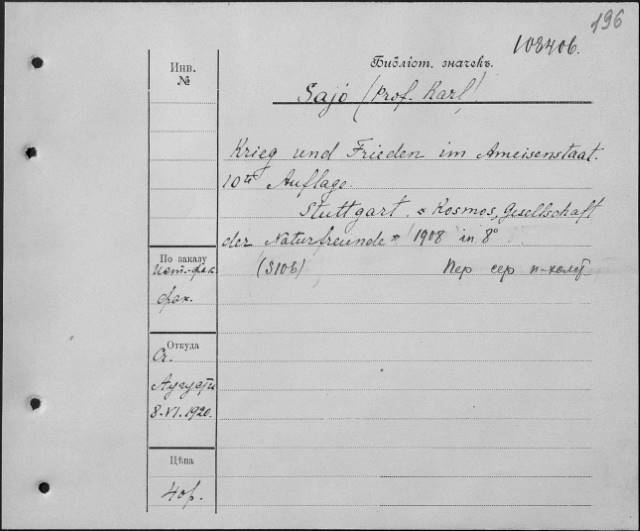 196
108406.
Библіот. значекъ.
Инв.
№
Sajó (Prof. Karl)
Krieg und Frieden im Ameisenstaat.
10te Auflage.
Stuttgart. "Kosmos, Gesellschaft
der Naturfreunde" 1908 in 8°
По заказу
Ист.-фак
фак.
(S106)
Пер сер п-холст
Откуда
От.
Августи
8.VI.1920.
Цѣна
40р.